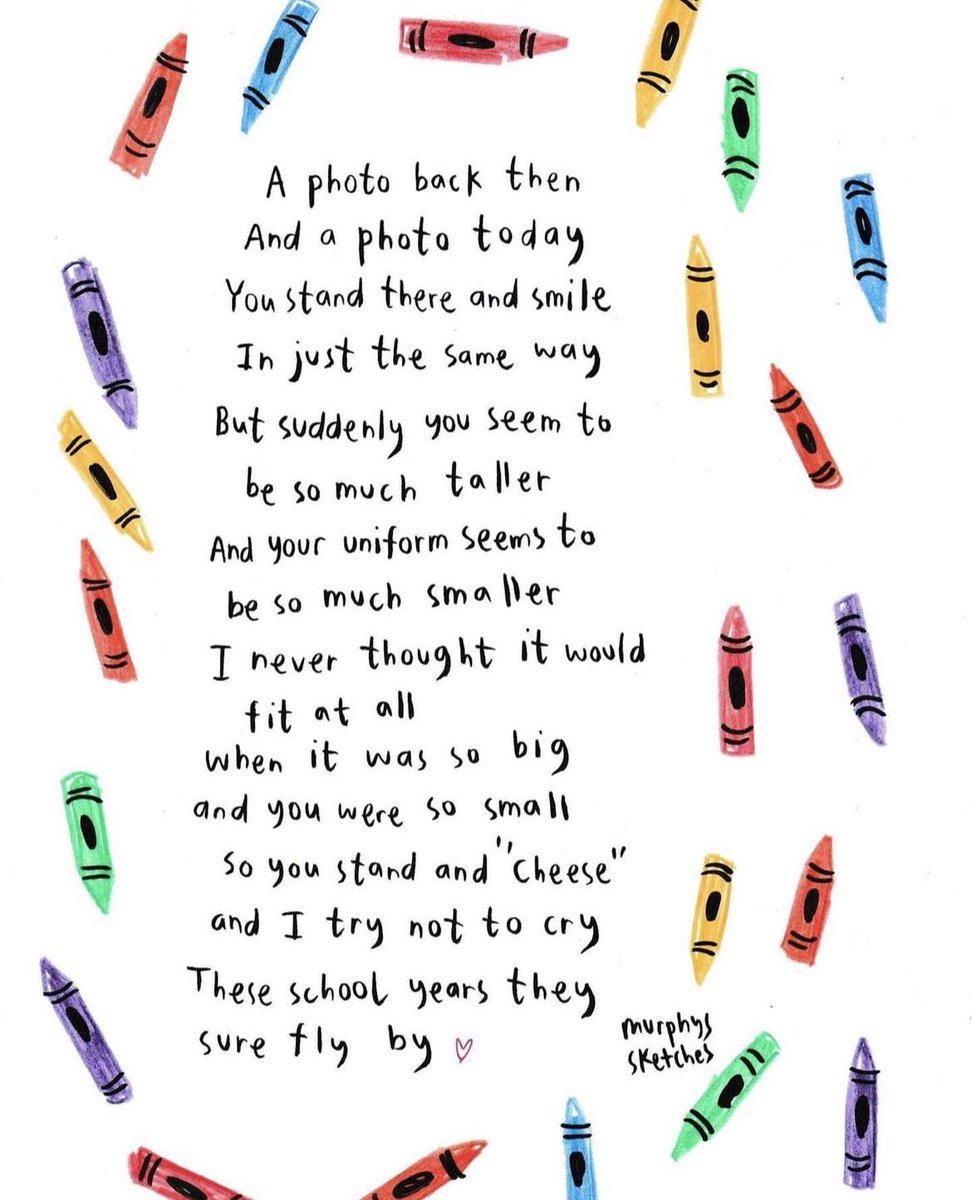 A photo back then
And a photo today
You stand there and smile
In just the same way
But suddenly you seem to
be so much taller
And your uniform seems to
be so much smaller
I never thought it would
fit at all
when it was so big
and you were so small
so you stand and "cheese"
and I try not to cry
These school years they
sure fly by
murphys
sketches